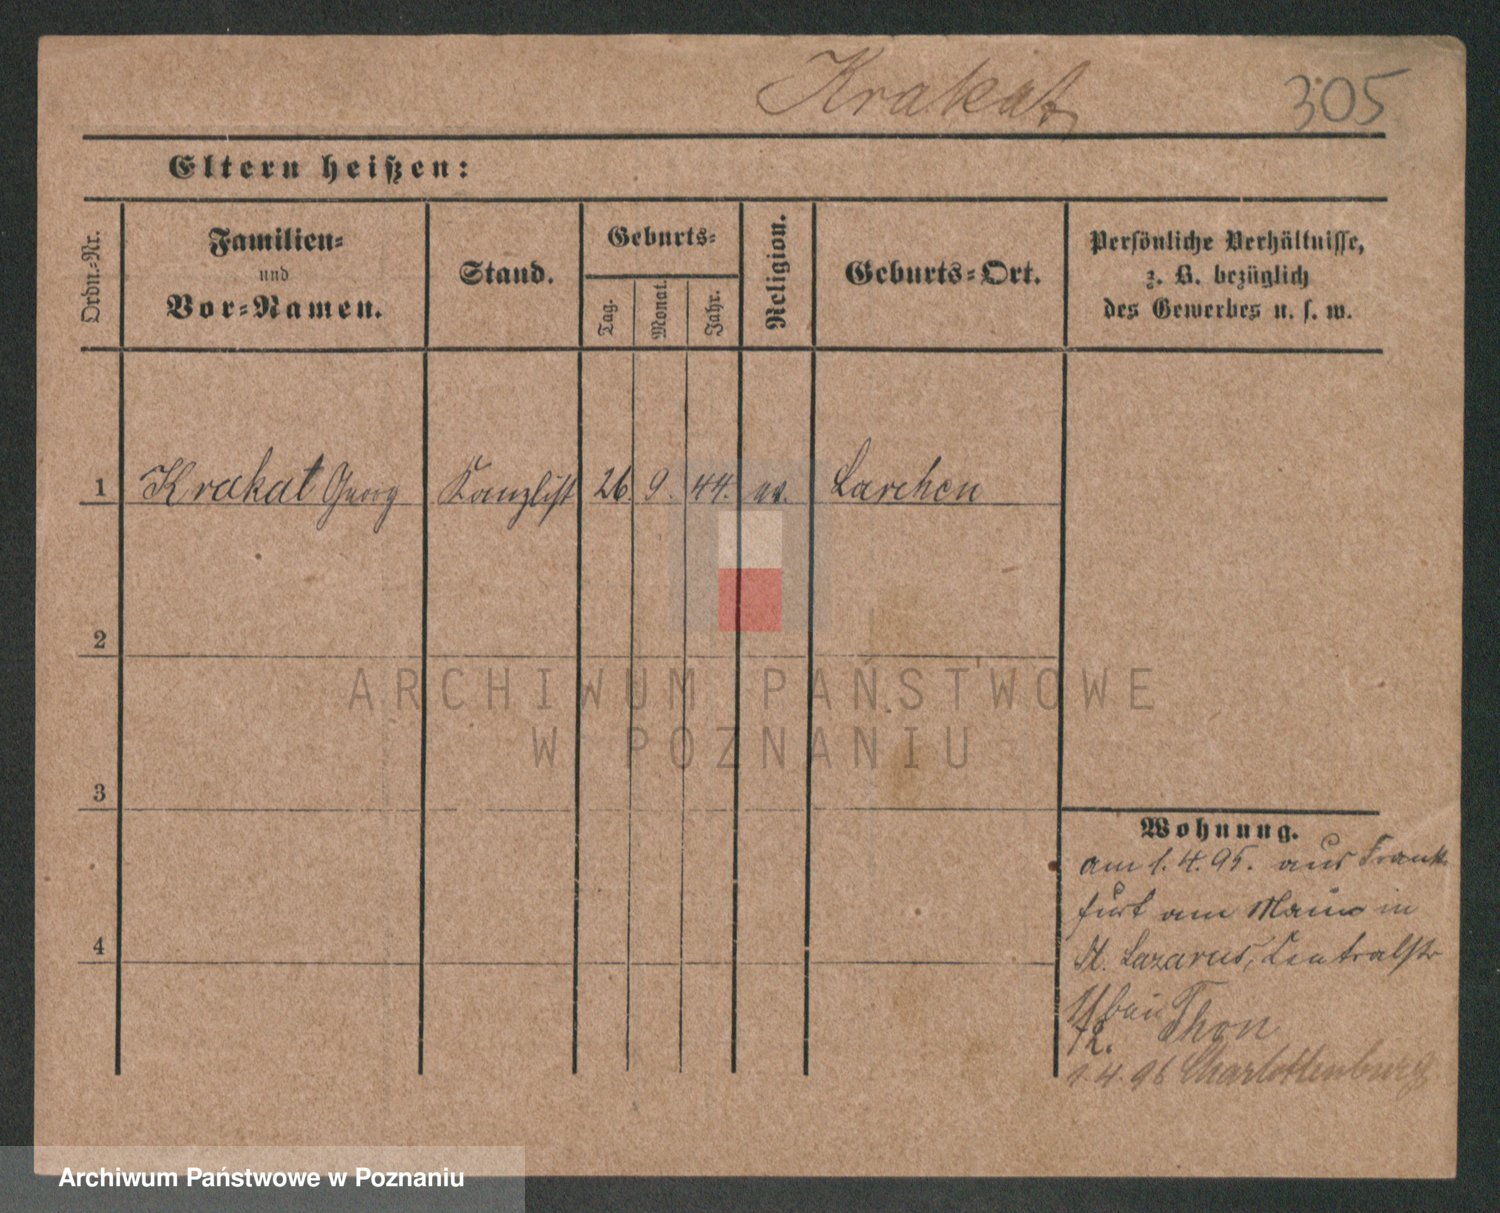 Krakat 305
Eltern heißen:
Ordn.-Nr.
Familien-
und
Vor-Namen.
Stand.
Geburts-
Tag.
Monat.
Jahr.
Religion.
Geburts-Ort.
Persönliche Verhältnisse,
z. B. bezüglich
des Gewerbes u. s. w.
1 Krakat Georg Kanzlist 26. 9. 44. ev. Larchen
2
ARCHIWUM PAŃSTWOWE
W POZNANIU
3
Wohnung.
am 1. 4. 95. aus Frank
furt am Main in
St. Lazarus, Centralstr
4
bei Thon
1.4.96 Charlottenburg
Archiwum Państwowe w Poznaniu